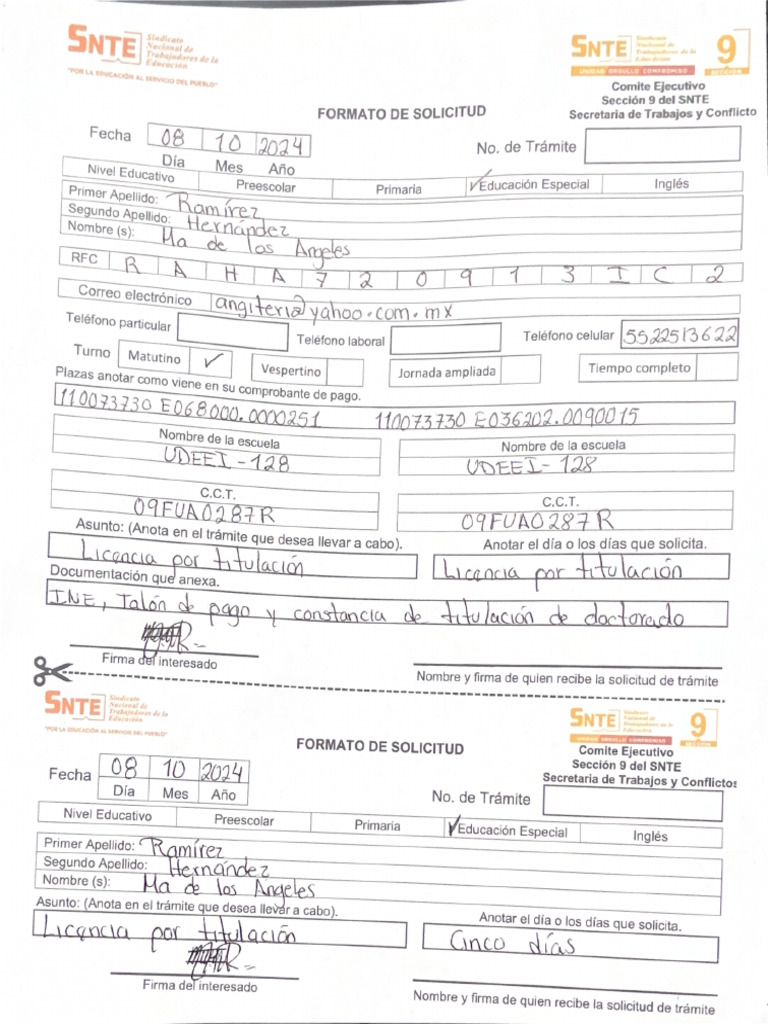 SNTE Sindicato Nacional de Trabajadores de la Educación
"POR LA EDUCACIÓN AL SERVICIO DEL PUEBLO"
SNTE Sindicato Nacional de Trabajadores de la Educación 9
UNIDAD ORGULLO COMPROMISO SECCIÓN
Comite Ejecutivo
Sección 9 del SNTE
Secretaria de Trabajos y Conflicto
FORMATO DE SOLICITUD
Fecha 08 10 2024
Día Mes Año
No. de Trámite
Nivel Educativo Preescolar Primaria ✓Educación Especial Inglés
Primer Apellido: Ramírez
Segundo Apellido: Hernández
Nombre (s): Ma de los Angeles
RFC R A H A 7 2 0 9 1 3 I C 2
Correo electrónico angiteri@yahoo.com.mx
Teléfono particular Teléfono laboral Teléfono celular 5522513622
Turno Matutino ✓ Vespertino Jornada ampliada Tiempo completo
Plazas anotar como viene en su comprobante de pago.
110073730 E068000.0000251 110073730 E036202.0090015
Nombre de la escuela Nombre de la escuela
UDEEI-128 UDEEI-128
C.C.T. C.C.T.
09FUA0287R 09FUA0287R
Asunto: (Anota en el trámite que desea llevar a cabo). Anotar el día o los días que solicita.
Licencia por titulación Licencia por titulación
Documentación que anexa.
INE, Talón de pago y constancia de titulación de doctorado
Firma del interesado Nombre y firma de quien recibe la solicitud de trámite
SNTE Sindicato Nacional de Trabajadores de la Educación
"POR LA EDUCACIÓN AL SERVICIO DEL PUEBLO"
SNTE Sindicato Nacional de Trabajadores de la Educación 9
UNIDAD ORGULLO COMPROMISO SECCIÓN
Comite Ejecutivo
Sección 9 del SNTE
Secretaria de Trabajos y Conflictos
FORMATO DE SOLICITUD
Fecha 08 10 2024
Día Mes Año
No. de Trámite
Nivel Educativo Preescolar Primaria ✓Educación Especial Inglés
Primer Apellido: Ramírez
Segundo Apellido: Hernández
Nombre (s): Ma de los Angeles
Asunto: (Anota en el trámite que desea llevar a cabo). Anotar el día o los días que solicita.
Licencia por titulación Cinco días
Firma del interesado Nombre y firma de quien recibe la solicitud de trámite